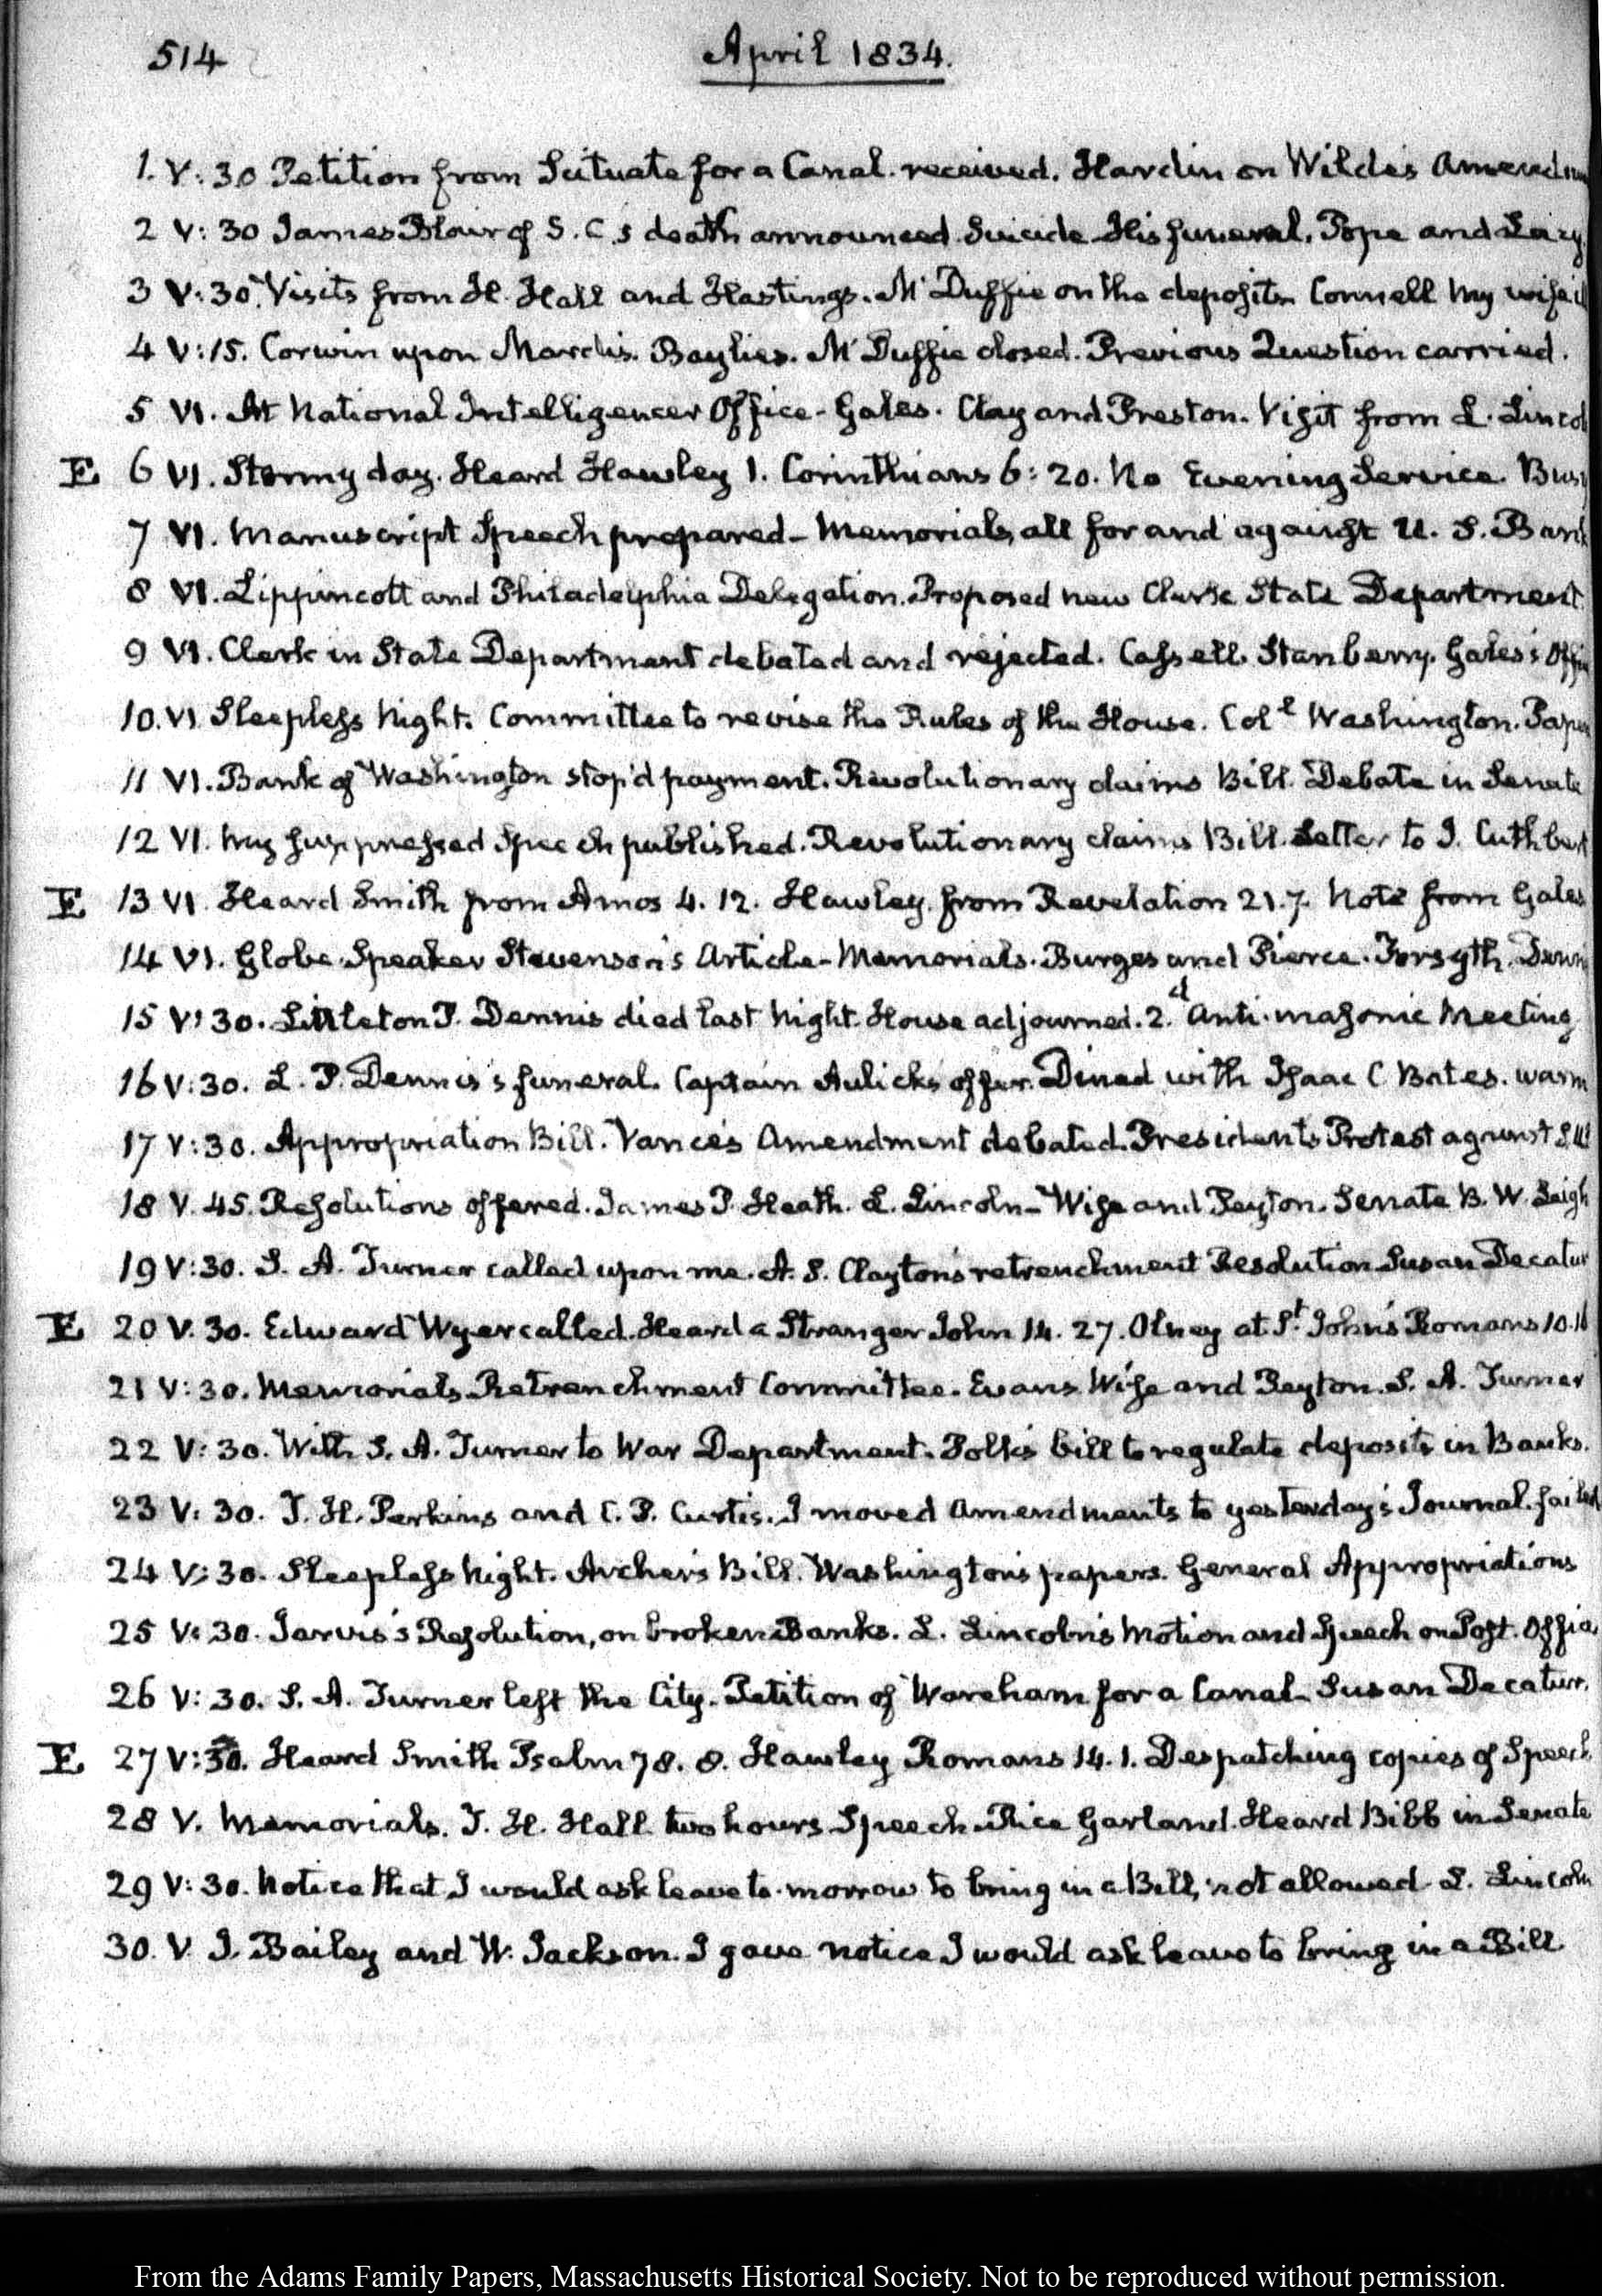 514
April 1834.
1. V:30 Petition from Scituate for a Canal. received. Hardin on Wilde's Amendm
2 V:30 James Blair of S. C.s death announced Suicide His funeral. Pope and
3 V:30. Visits from H. Hall and Hastings. McDuffie on the deposits Connell My wife ill
4 V:15. Corwin upon Mardis. Baylies. McDuffie closed. Previous Question carried.
5 VI. At National Intelligencer Office - Gales. Clay and Preston. Visit from L. Lincol
E 6 VI. Stormy day. Heard Hawley 1. Corinthians 6:20. No Evening Service. Busy
7 VI. Manuscript Speech prepared - Memorials, all for and against U. S. Bank
8 VI. Lippincott and Philadelphia Delegation. Proposed new Clerk State Department.
9 VI. Clerk in State Department debated and rejected. Cassell Stanbery. Gales's Offi
10. VI Sleepless Night. Committee to revise the Rules of the House. Coll Washington. Pape
11 VI. Bank of Washington stop'd payment. Revolutionary claims Bill. Debate in Senate
12 VI. My suppressed Speech published. Revolutionary claims Bill. Letter to J. Cuthbert
E 13 VI. Heard Smith from Amos 4. 12. Hawley from Revelation 21.7. Note from Gales
14 VI. Globe Speaker Stevenson's Article - Memorials. Burges and Pierce. Forsyth. Denni
15 V:30. Littleton P. Dennis died last Night. House adjourned. 2.d Anti-masonic Meeting
16 V:30. L. P. Dennis's funeral. Captain Aulick's offer. Dined with Isaac C Bates. warm
17 V:30. Appropriation Bill. Vance's Amendment debated. President's Protest against
18 V. 45. Resolutions offered. James P. Heath. L. Lincoln - Wise and Peyton. Senate B. W. Leigh
19 V:30. S. A. Turner called upon me. A. S. Clayton's retrenchment Resolution Susan Decatur
E 20 V. 30. Edward Wyer called. Heard a Stranger John 14. 27. Olney at St. John's Romans 10.
21 V:30. Memorials. Retrenchment Committee. Evans Wise and Peyton. S. A. Turner
22 V:30. With S. A. Turner to War Department. Polk's bill to regulate deposits in Banks.
23 V:30. T. H. Perkins and C. P. Curtis. I moved Amendments to yesterday's Journal. failed
24 V:30. Sleepless Night. Archer's Bill. Washington's papers. General Appropriations
25 V:30. Jarvis's Resolution, on broken Banks. L. Lincoln's Motion and Speech on Post. Office
26 V:30. S. A. Turner left the City. Petition of Wareham for a Canal. Susan Decatur.
E 27 V:30. Heard Smith Psalm 78. 8. Hawley Romans 14. 1. Despatching copies of Speech
28 V. Memorials. T. H. Hall two hours Speech. Rice Garland. Heard Bibb in Senate
29 V:30. Notice that I would ask leave to-morrow to bring in a Bill, not allowed. L. Lincoln
30. V J. Bailey and W. Jackson. I gave notice I would ask leave to bring in a Bill.
From the Adams Family Papers, Massachusetts Historical Society. Not to be reproduced without permission.